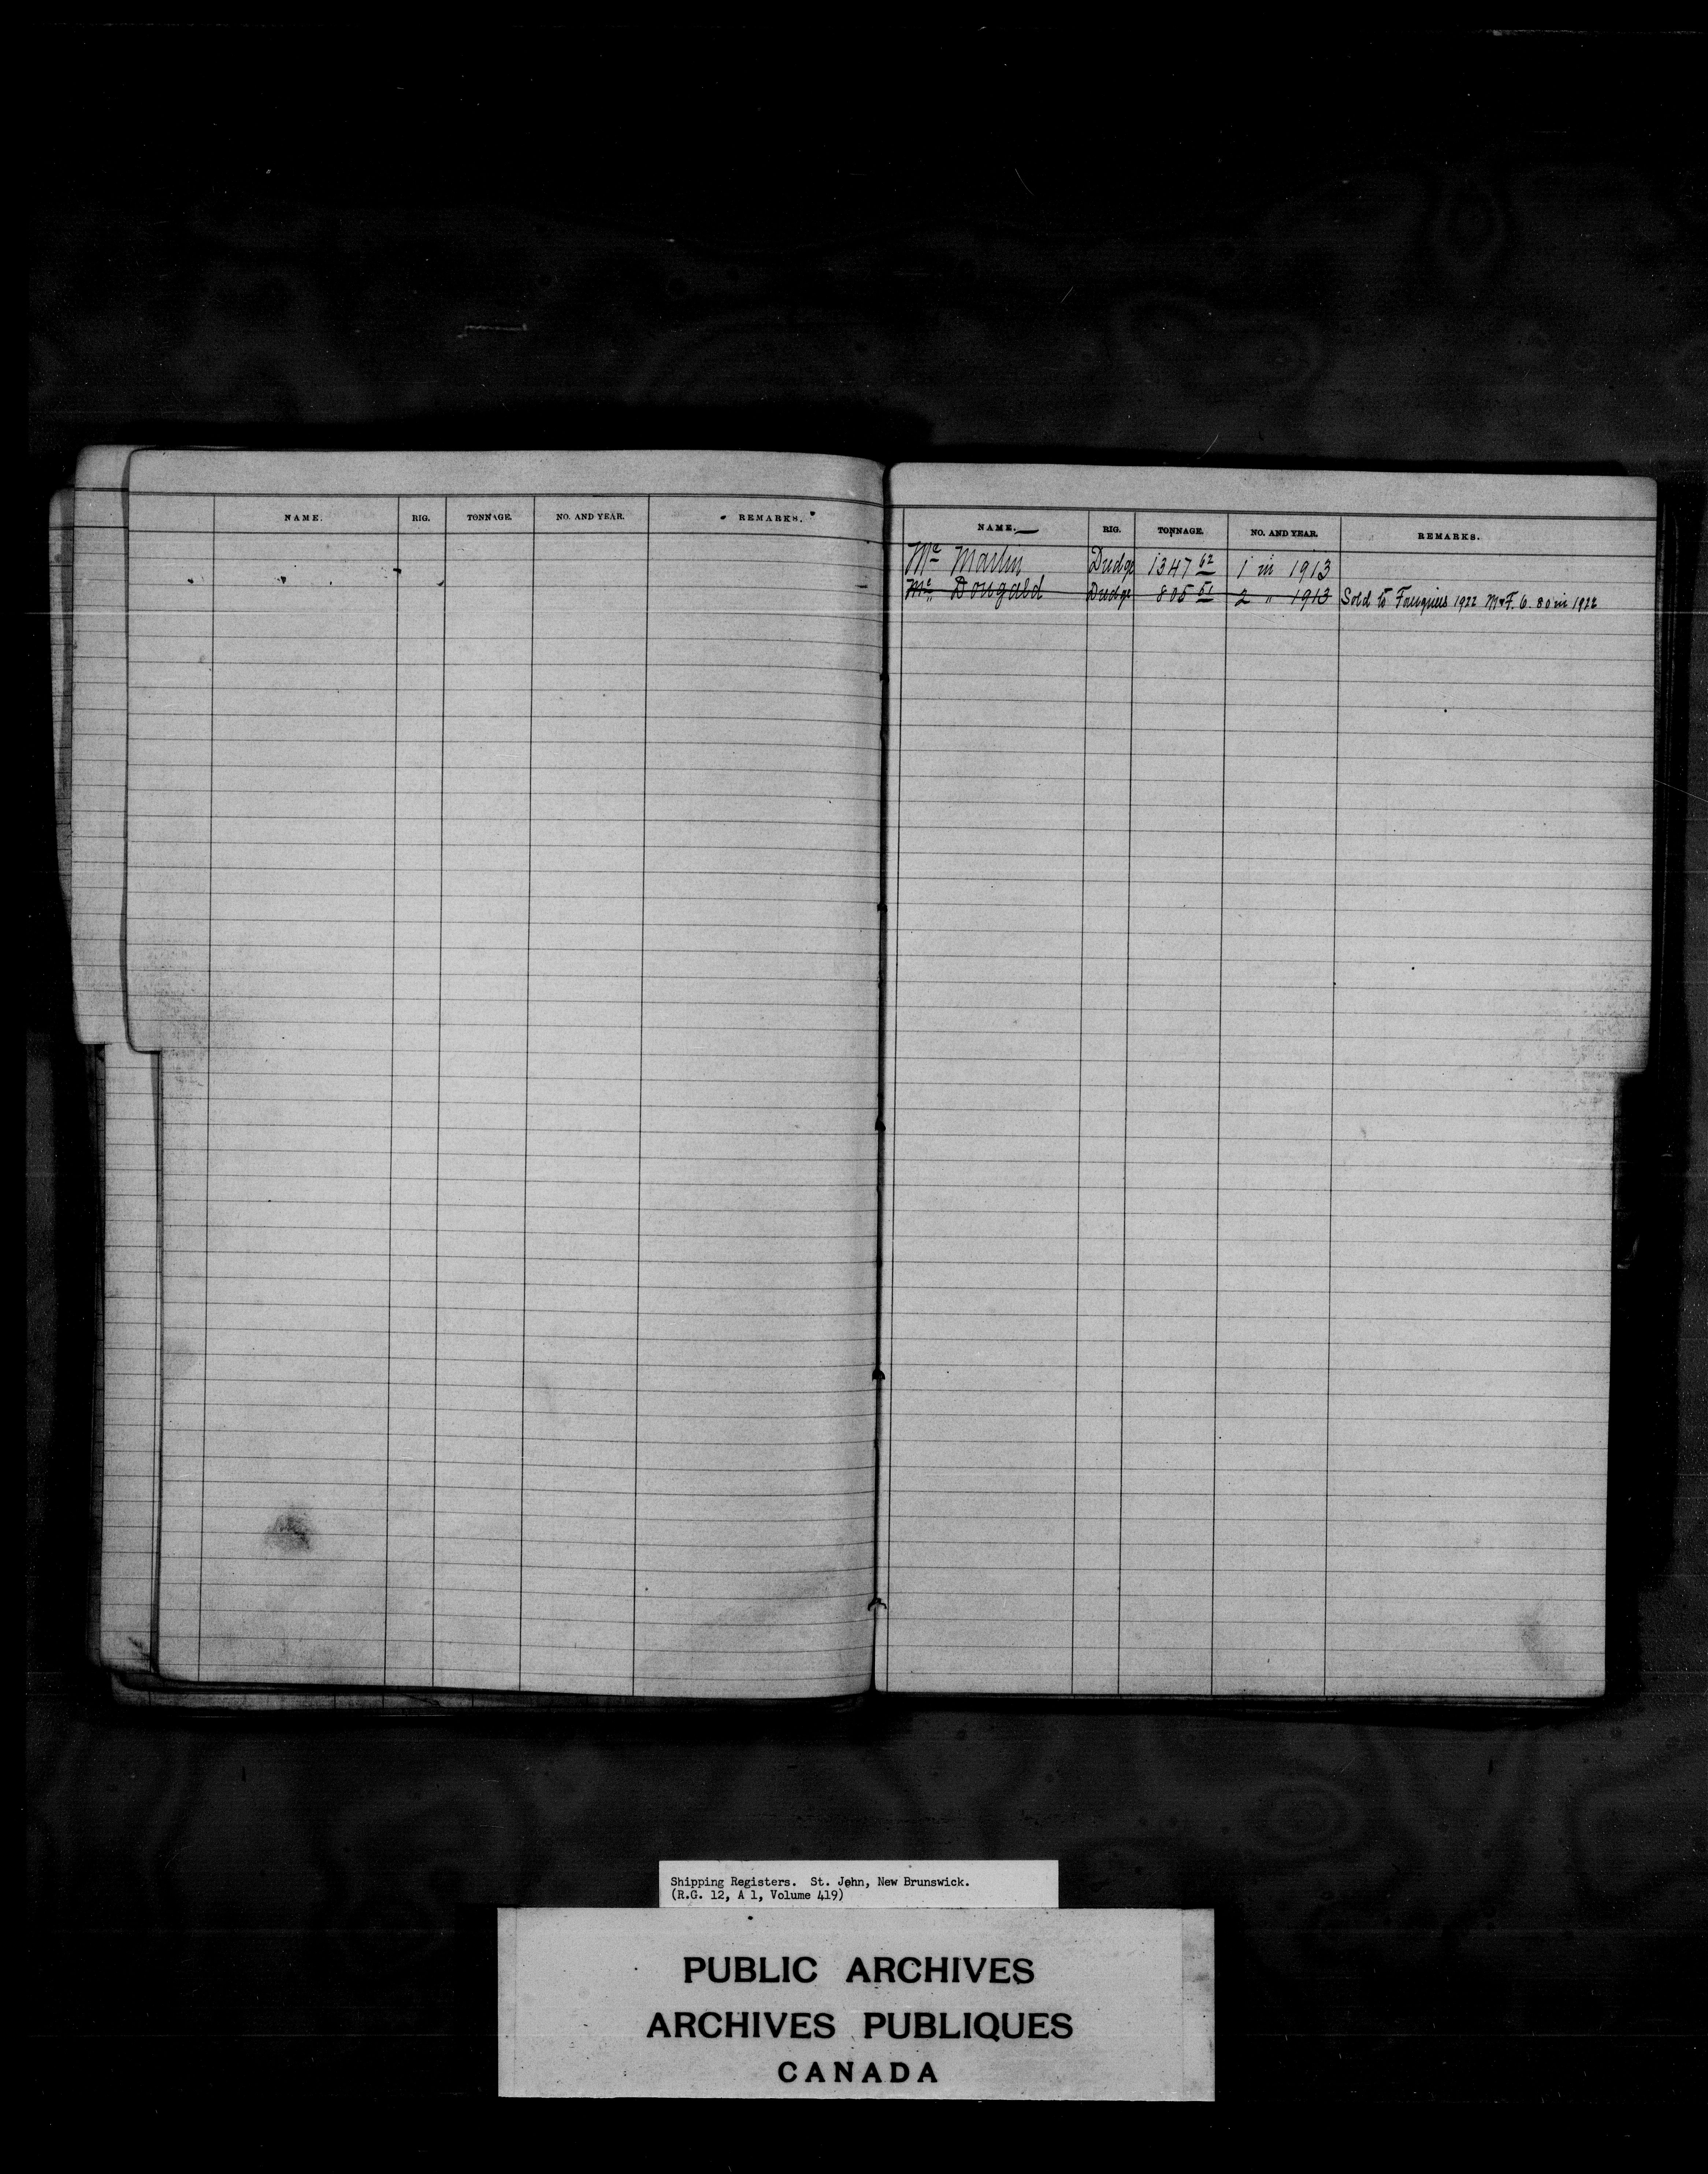 NAME. RIG. TONNAGE. NO. AND YEAR. REMARKS.
NAME. RIG. TONNAGE. NO. AND YEAR. REMARKS.
Mc Martin Dredge 1347 62 1 in 1913
Mc Dougald Dredge 805 51 2 " 1913 Sold to 1922 80 in 1922
Shipping Registers. St. John, New Brunswick.
(R.G. 12, A 1, Volume 419)
PUBLIC ARCHIVES
ARCHIVES PUBLIQUES
CANADA